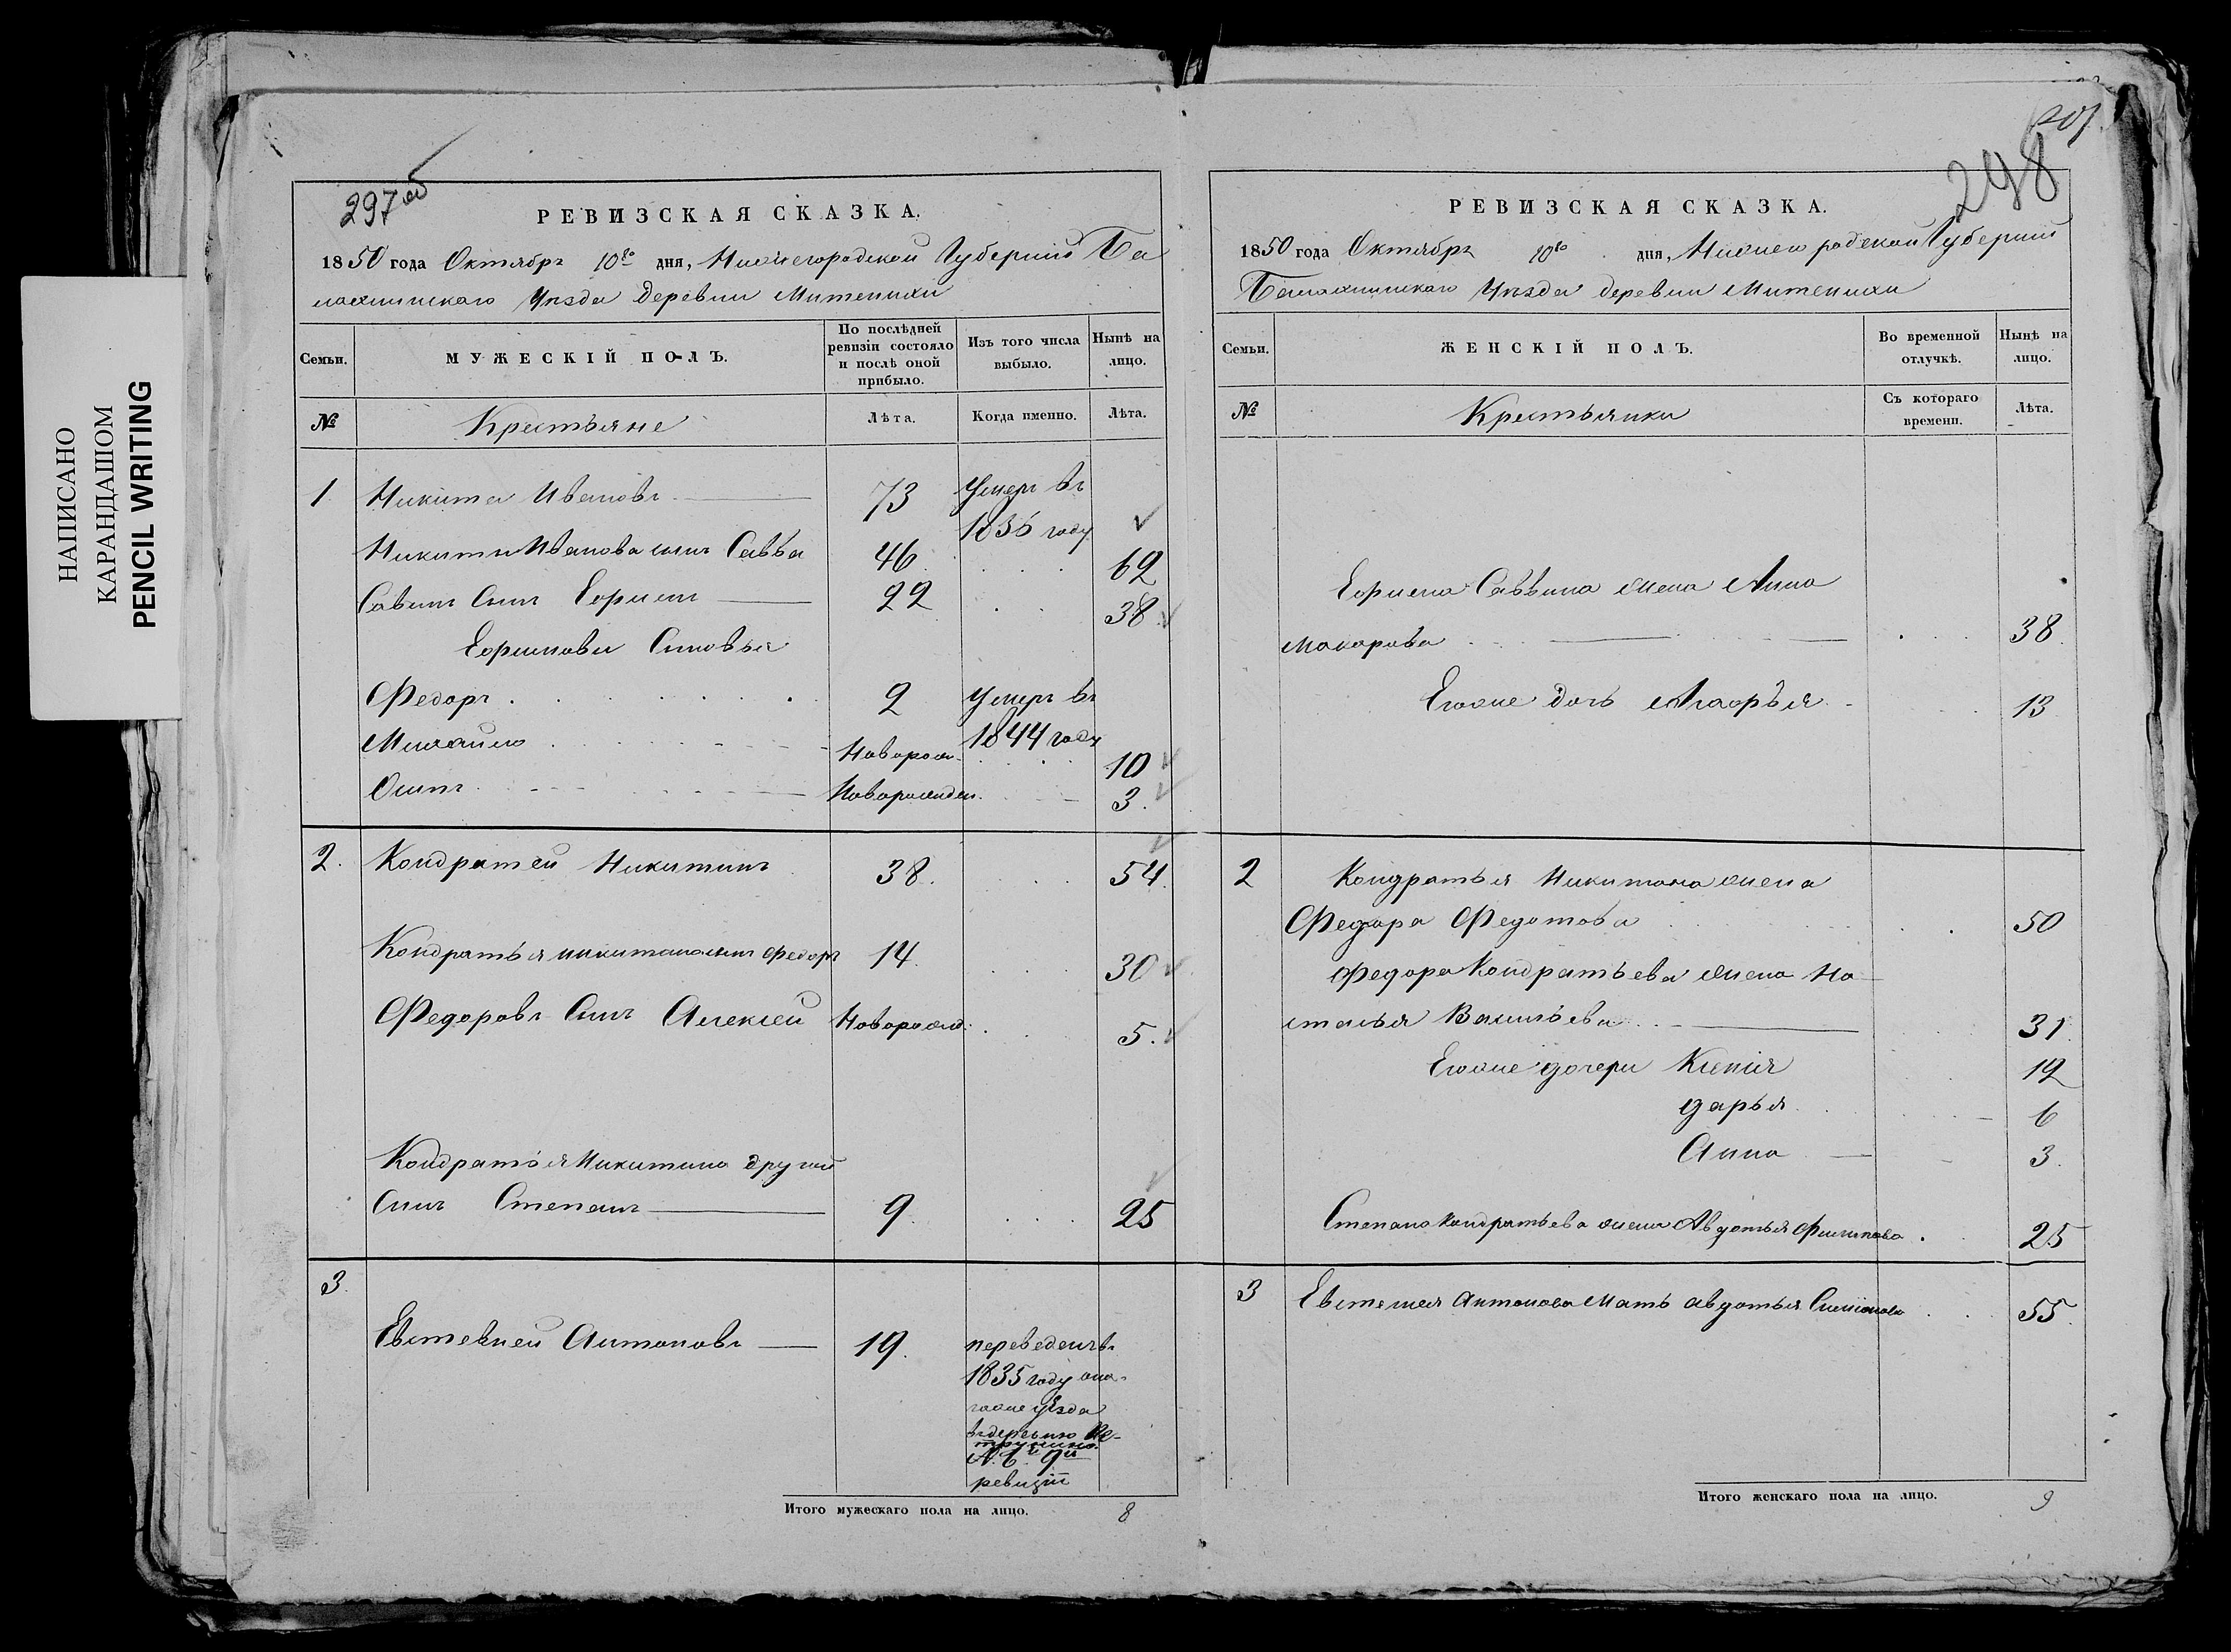 НАПИСАНО
КАРАНДАШОМ
PENCIL WRITING
297об
РЕВИЗСКАЯ СКАЗКА.
1850 года Октября 10го дня, Нижегородской Губернии Ба
лахнинскаго Уезда Деревни Митенихи
Семьи.
МУЖЕСКІЙ ПОЛЪ.
По послѣдней
ревизіи состояло
и послѣ оной
прибыло.
Изъ того числа
выбыло.
Нынѣ на
лицо.
№
Крестьяне
Лѣта.
Когда именно.
Лѣта.
1 Никита Ивановъ 73 Умеръ въ
1836 году
Никиты Иванова сынъ Савва 46 62
Савинъ Сынъ Ефримъ 22 38
Ефримовы Сыновья
Федоръ 2 Умеръ въ
1844 году
Михайло Новорож. 10
Осипъ Новорожден. 3.
2. Кондратей Никитинъ 38. 54.
Кондратья никитина сынъ Федоръ 14. 30
Федоровъ Сынъ Алексей Новорожд. 5.
Кондратья Никитина другой
Сынъ Степанъ 9. 25
3.
Евстевней Антоновъ 19. переведенъ въ
1835 году
уезда
въ деревню
ревизіи
Итого мужескаго пола на лицо. 8
207.
298
РЕВИЗСКАЯ СКАЗКА.
1850 года Октября 10го дня, Нижегородской Губернии
Балахнинскаго Уезда деревни Митенихи
Семьи.
ЖЕНСКІЙ ПОЛЪ.
Во временной
отлучкѣ.
Нынѣ на
лицо.
№
Крестьянки
Съ котораго
времени.
Лѣта.
Ефрима Саввина жена Анна
Макарова 38.
Егоже дочь 13
2 Кондратья Никитина жена
Федора Федотова 50
Федора Кондратьева жена На
сталья Васильева 31.
Егоже дочери Ксенія 12
дарья 6
Анна 3.
Степана Кондратьева жена Авдотья Филипова 25
3 Антонова Мать авдотья Симіонова 55.
Итого женскаго пола на лицо. 9